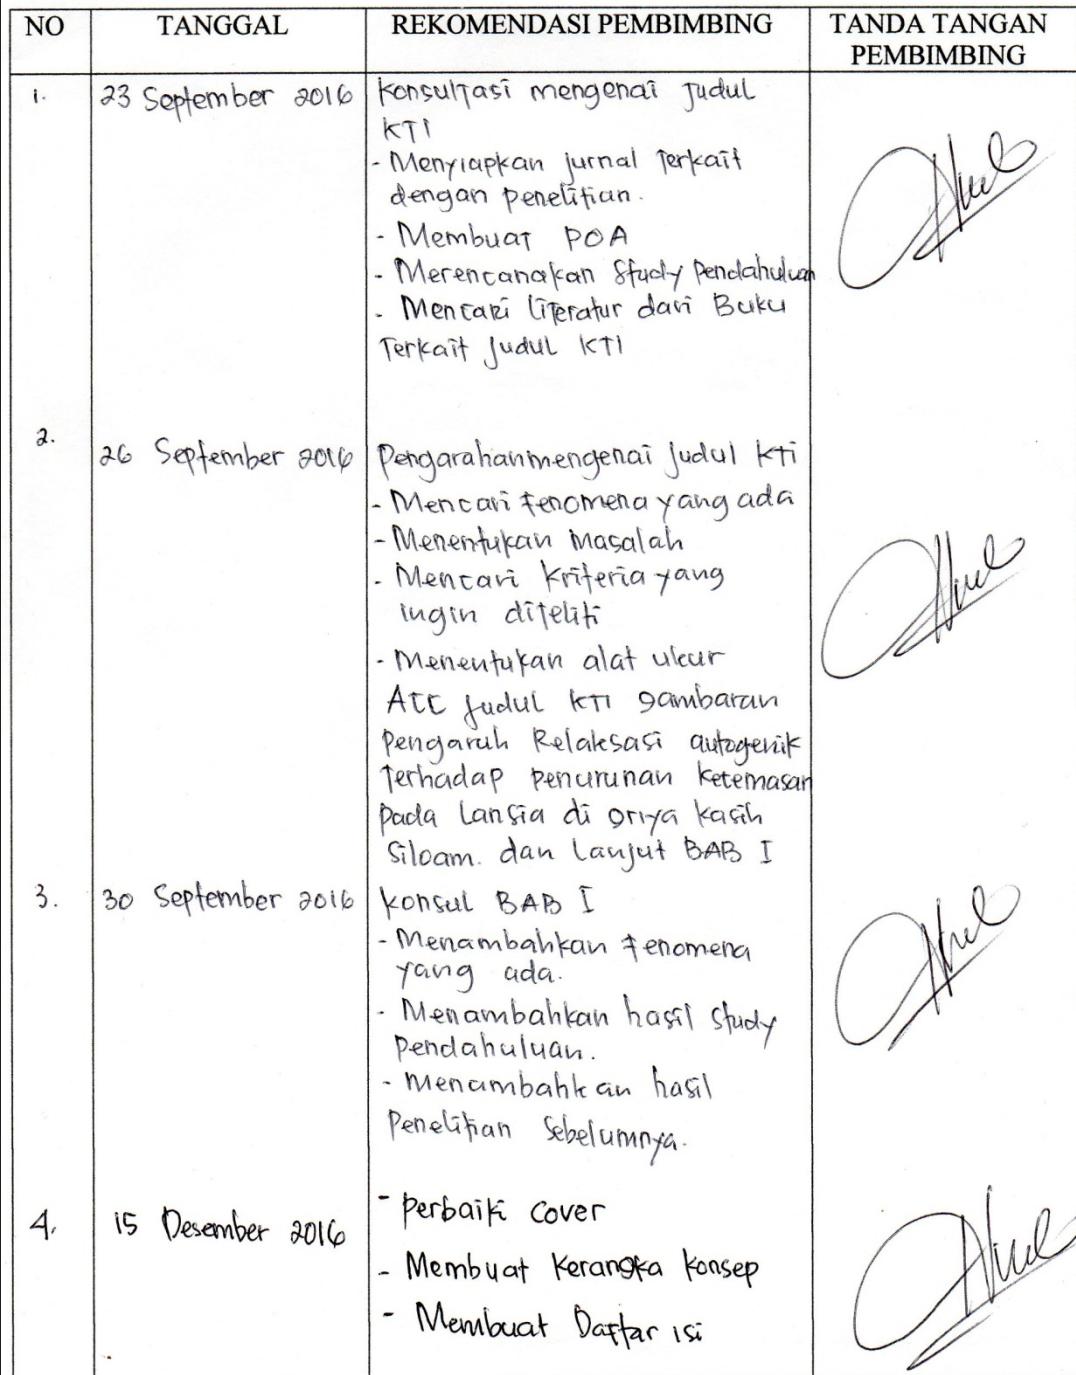 NO TANGGAL REKOMENDASI PEMBIMBING TANDA TANGAN
PEMBIMBING
1. 23 September 2016 Konsultasi mengenai Judul
KTI
- Menyiapkan jurnal Terkait
dengan penelitian.
- Membuat POA
- Merencanakan Study Pendahuluan
- Mencari literatur dari Buku
Terkait Judul KTI
2. 26 September 2016 Pengarahan mengenai Judul KTI
- Mencari fenomena yang ada
- Menentukan Masalah
- Mencari Kriteria yang
ingin diteliti
- Menentukan alat ukur
ACC Judul KTI gambaran
Pengaruh Relaksasi autogenik
Terhadap penurunan kecemasan
pada Lansia di Griya Kasih
Siloam. dan Lanjut BAB I
3. 30 September 2016 Konsul BAB I
- Menambahkan Fenomena
yang ada.
- Menambahkan hasil Study
Pendahuluan.
- Menambahkan hasil
Penelitian Sebelumnya.
4. 15 Desember 2016 - Perbaiki Cover
- Membuat Kerangka Konsep
- Membuat Daftar isi